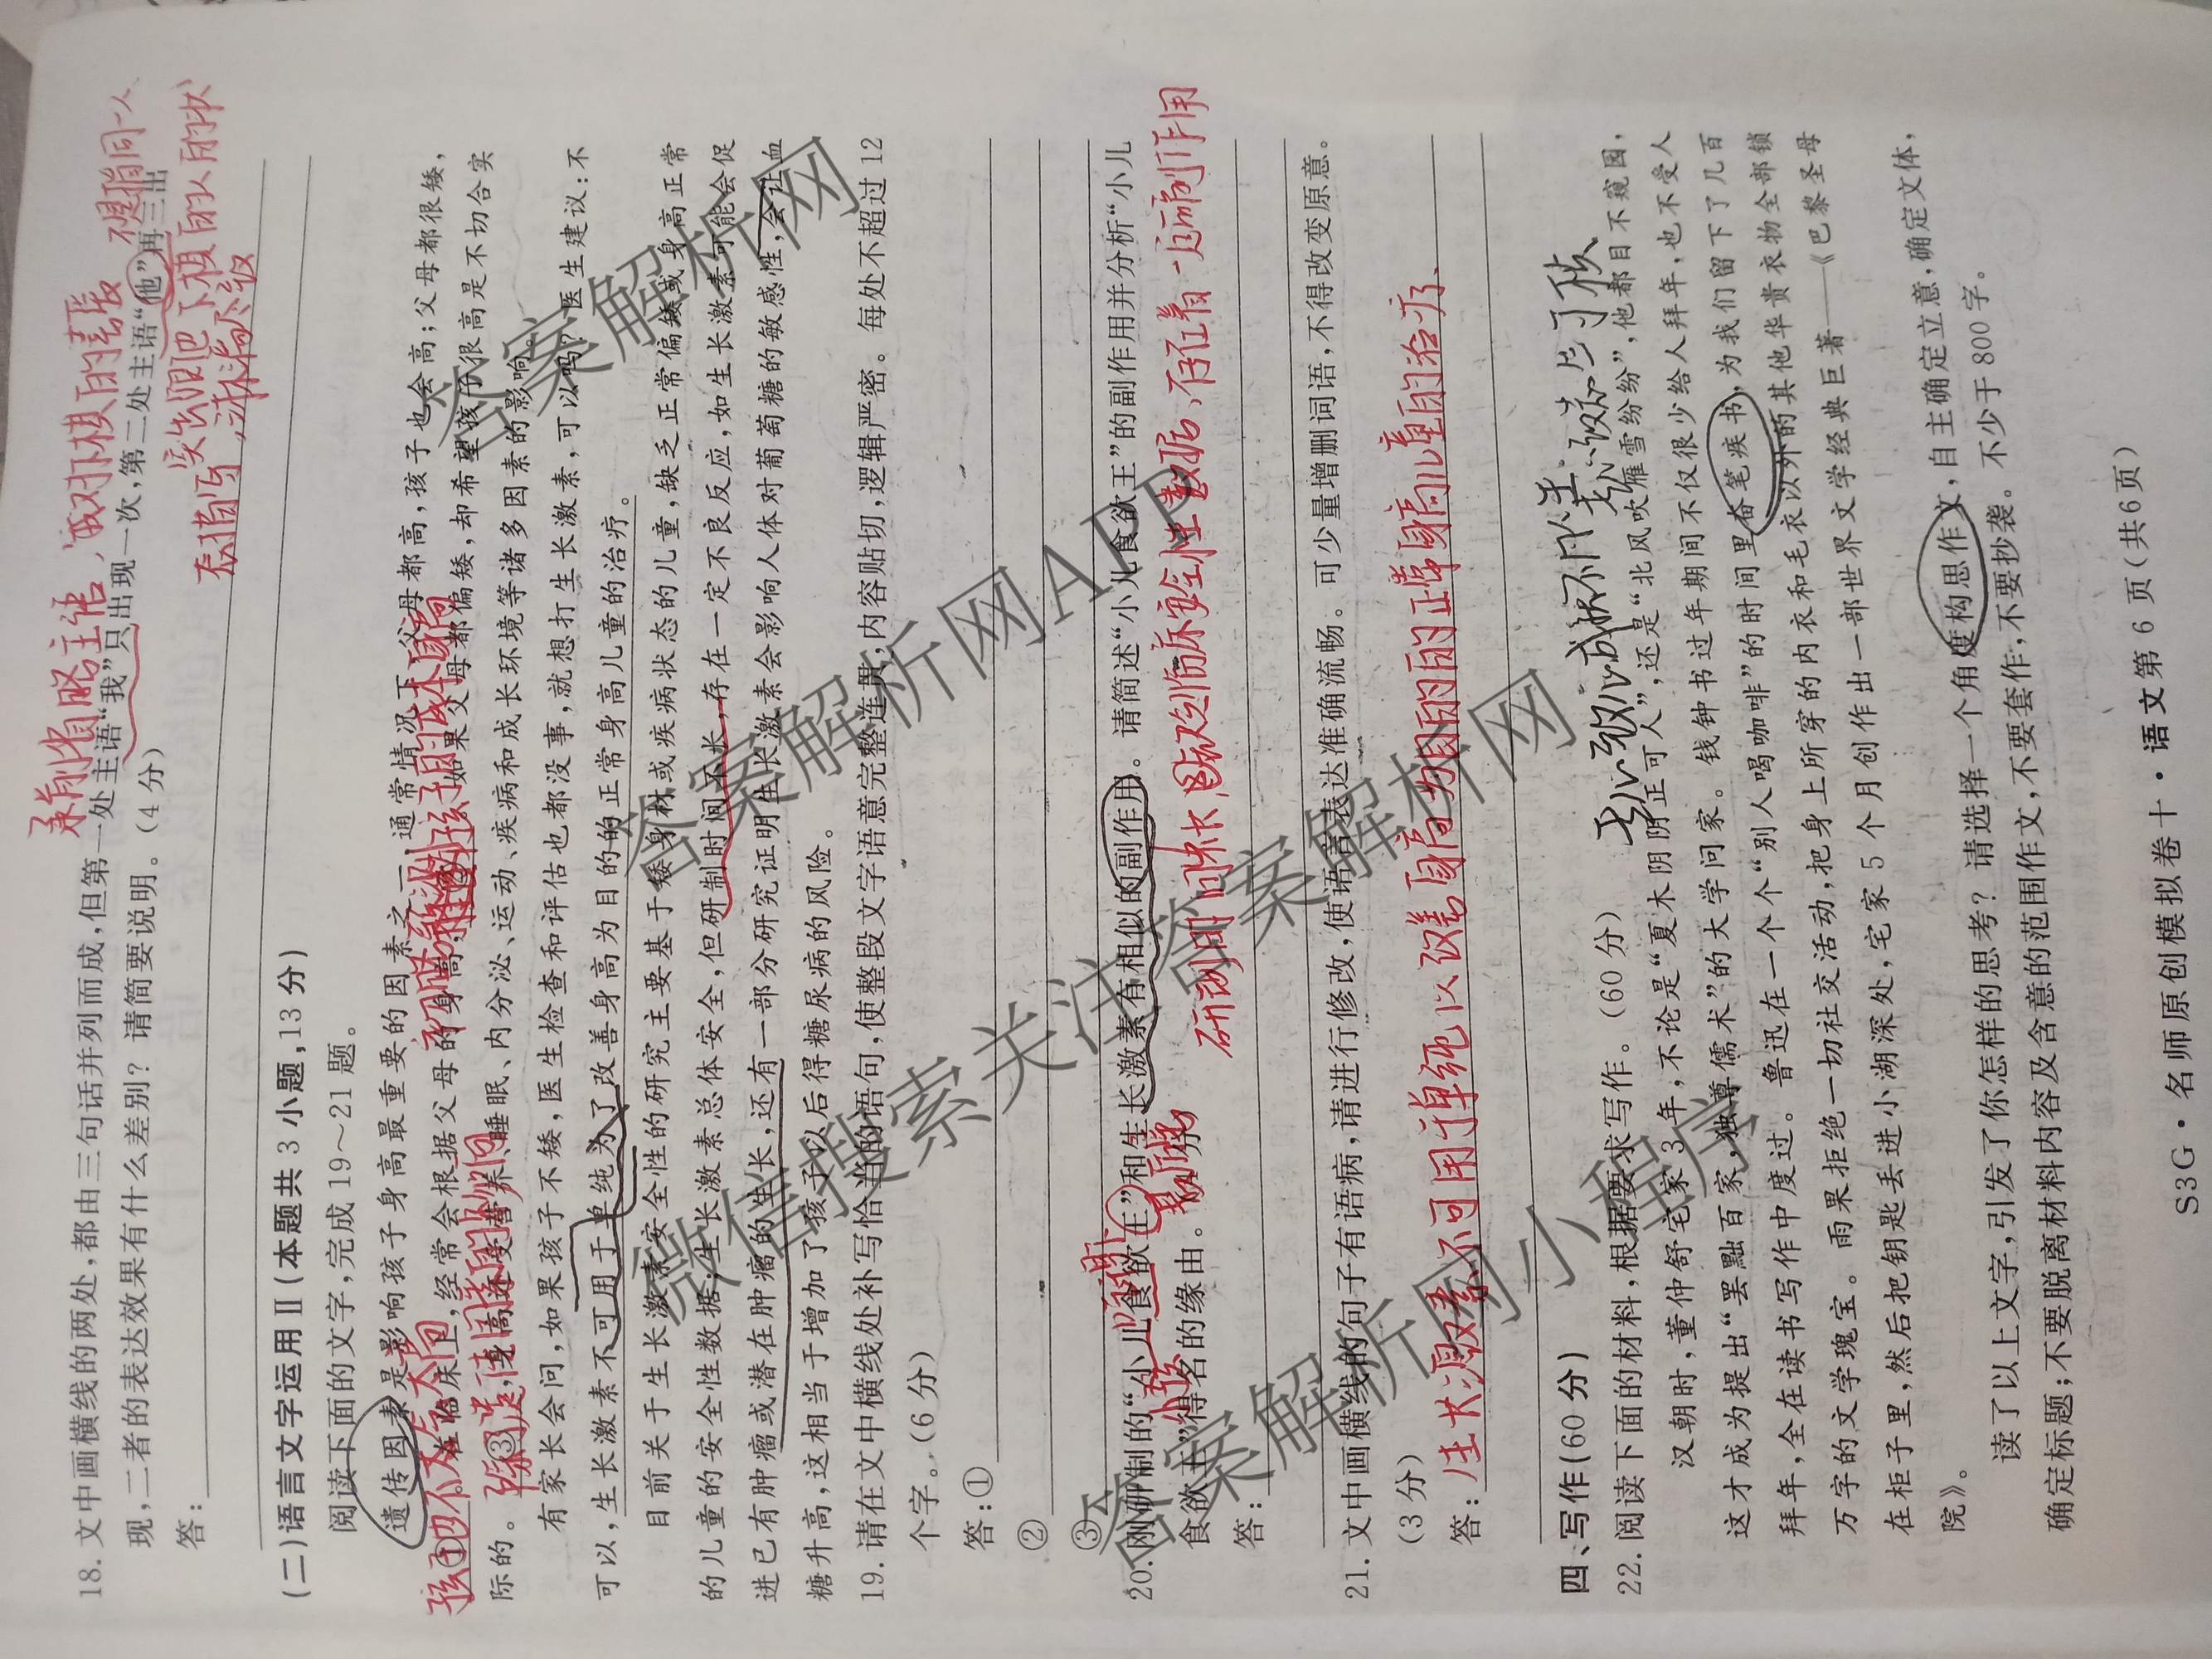 18. 文中画横线的两处,都由三句话并列而成,但第一处主语“我”只出现一次,第二处主语“他”再三出
现,二者的表达效果有什么差别?请简要说明。(4分)
承前省略主语,
答:
(二)语言文字运用Ⅱ(本题共3小题,13分)
阅读下面的文字,完成19~21题。
遗传因素是影响孩子身高最重要的因素之一,通常情况下,父母都高,孩子也会高;父母都很矮,
孩子 ① 。在临床上,经常会根据父母的身高, ② 。如果父母都偏矮,却希望孩子很高是不切合实
际的。 ③ ,身高还受营养、睡眠、内分泌、运动、疾病和成长环境等诸多因素的影响。
有家长会问,如果孩子不矮,医生检查和评估也都没事,就想打生长激素,可以吗?医生建议:不
可以,生长激素不可用于单纯为了改善身高为目的的正常身高儿童的治疗。
目前关于生长激素安全性的研究主要基于矮身材或疾病状态的儿童,缺乏正常偏矮或身高正常
的儿童的安全性数据;生长激素总体安全,但研制时间不长,存在一定不良反应,如生长激素可能会促
进已有肿瘤或潜在肿瘤的生长,还有一部分研究证明生长激素会影响人体对葡萄糖的敏感性,会让血
糖升高,这相当于增加了孩子以后得糖尿病的风险。
19. 请在文中横线处补写恰当的语句,使整段文字语意完整连贯,内容贴切,逻辑严密。每处不超过12
个字。(6分)
答:①
②
③
20. 刚研制的“小儿食欲在”和生长激素有相似的副作用。请简述“小儿食欲王”的副作用并分析“小儿
食欲王”得名的缘由。
研制时间不长,缺乏临床安全性数据,存在着一定副作用
答:
21. 文中画横线的句子有语病,请进行修改,使语言表达准确流畅。可少量增删词语,不得改变原意。
(3分)
答:生长激素不可用于单纯以改善身高为目的的正常身高儿童的治疗.
四、写作(60分)
22. 阅读下面的材料,根据要求写作。(60分)
汉朝时,董仲舒宅家3年,不论是“夏木阴阴正可人”,还是“北风吹雁雪纷纷”,他都目不窥园,
这才成为提出“罢黜百家,独尊儒术”的大学问家。钱钟书过年期间不仅很少给人拜年,也不受人
拜年,全在读书写作中度过。鲁迅在一个个“别人喝咖啡”的时间里奋笔疾书,为我们留下了几百
万字的文学瑰宝。雨果拒绝一切社交活动,把身上所穿的内衣和毛衣以外的其他华贵衣物全部锁
在柜子里,然后把钥匙丢进小湖深处,宅家5个月创作出一部世界文学经典巨著——《巴黎圣母
院》。
读了以上文字,引发了你怎样的思考?请选择一个角度构思作文,自主确定立意,确定文体,
确定标题;不要脱离材料内容及含意的范围作文,不要套作,不要抄袭。不少于800字。
S3G·名师原创模拟卷十·语文第6页(共6页)